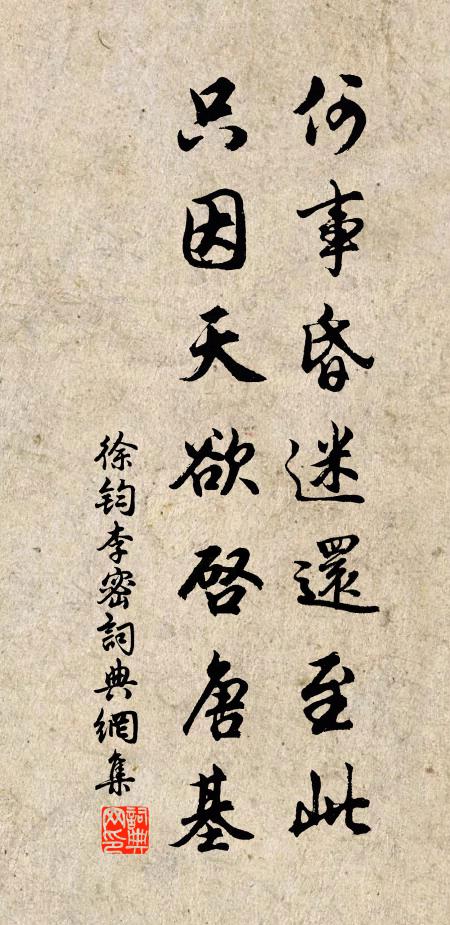 何事昏迷還至此
只因天欲啓唐基
徐鈞李密詞典網集
詞典網印